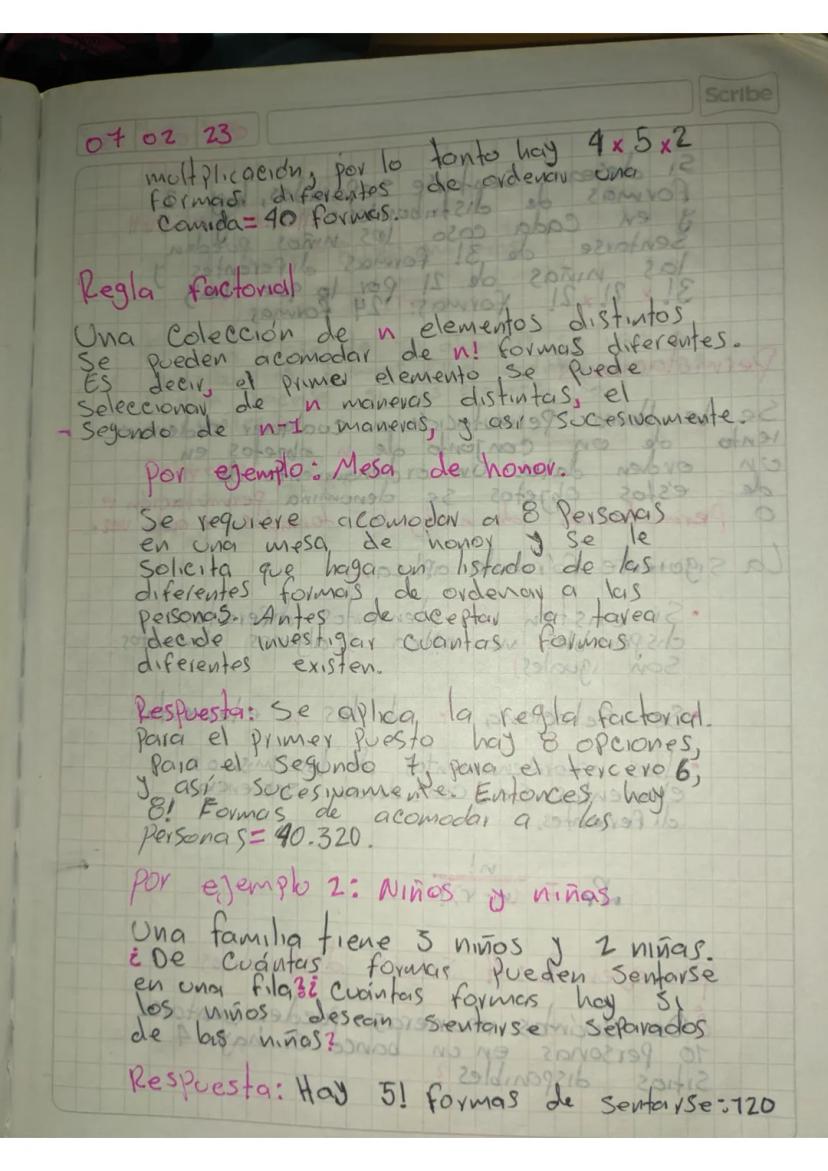 Scribe
07 02 23
moltplicación, por lo tanto hay 4 x 5 x 2
formas diferentes de ordenar una
Comida = 40 formas.
Regla factorial
Una Colección de n elementos distintos
Se pueden acomodar de n! formas diferentes.
Es decir, el primer elemento se puede
Seleccionar de n maneras distintas, el
- Segundo de n-1 maneras, y así sucesivamente.
Por ejemplo: Mesa de honor.
Se requiere acomodar a 8 Personas
en una mesa de honor y se le
Solicita que haga un listado de las
diferentes formas de ordenar a las
personas. Antes de aceptar la tarea
decide investigar cuantas formas
diferentes existen.
Respuesta: Se aplica la regla factorial.
Para el primer Puesto hay 8 opciones,
Para el segundo 7, para el tercero 6,
y así sucesivamente. Entonces hay
8! Formas de acomodar a las
Personas = 40.320.
Por ejemplo 2: Niños y niñas.
Una familia tiene 3 niños y 2 niñas.
¿De Cuántas formas Pueden Sentarse
en una fila?¿Cuántas formas hay si
los niños desean sentarse separados
de las niñas?
Respuesta: Hay 5! formas de sentarse: 120